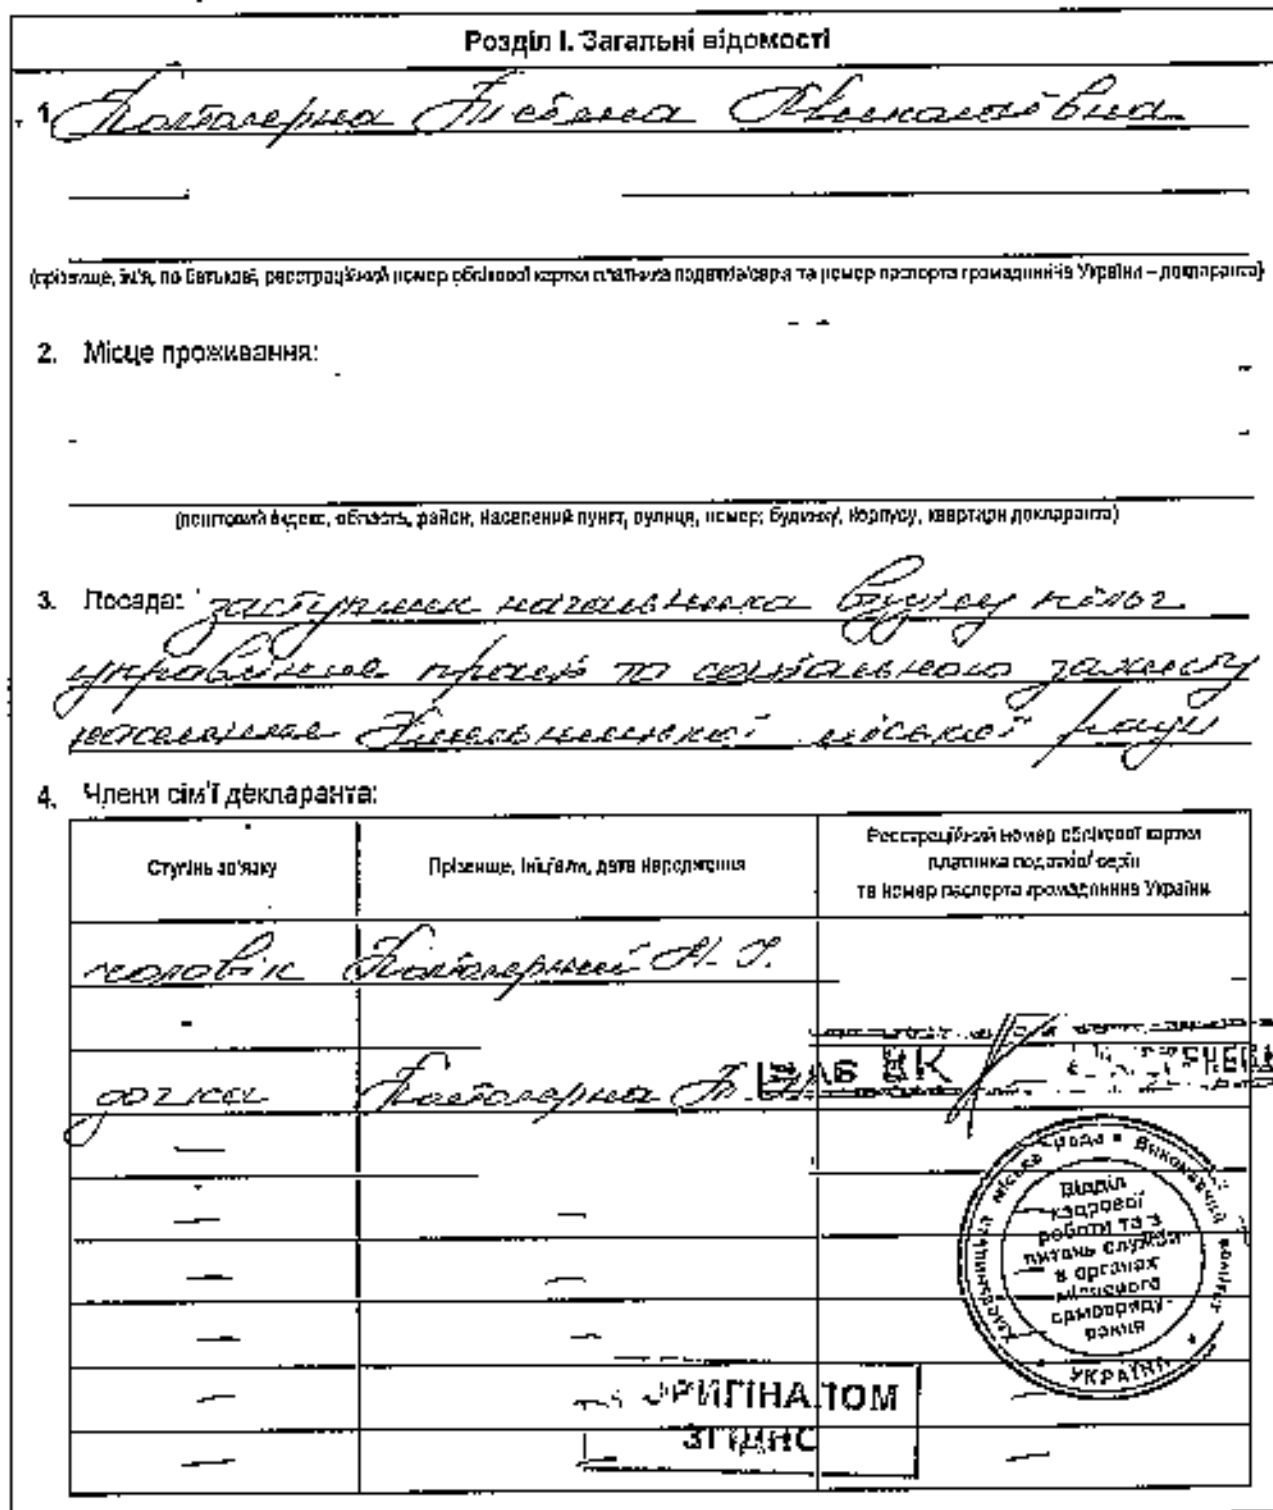 Розділ І. Загальні відомості
1. Миколаївна
(прізвище, ім'я, по батькові, реєстраційний номер облікової картки платника податків/серія та номер паспорта громадянина України – декларанта)
2. Місце проживання:
(поштовий індекс, область, район, населений пункт, вулиця, номер: будинку, корпусу, квартири декларанта)
3. Посада: заступник начальника відділу
управління праці та соціального захисту
населення Хмельницької міської ради
4. Члени сім'ї декларанта:
Ступінь зв'язку
Прізвище, ініціали, дата народження
Реєстраційний номер облікової картки
платника податків/ серія
та номер паспорта громадянина України
чоловік
дочка
Хмельницька міська рада • Виконавчий комітет
Відділ
кадрової
роботи та з
питань служби
в органах
місцевого
самовряду-
вання
УКРАЇНА
З ОРИГІНАЛОМ
ЗГІДНО